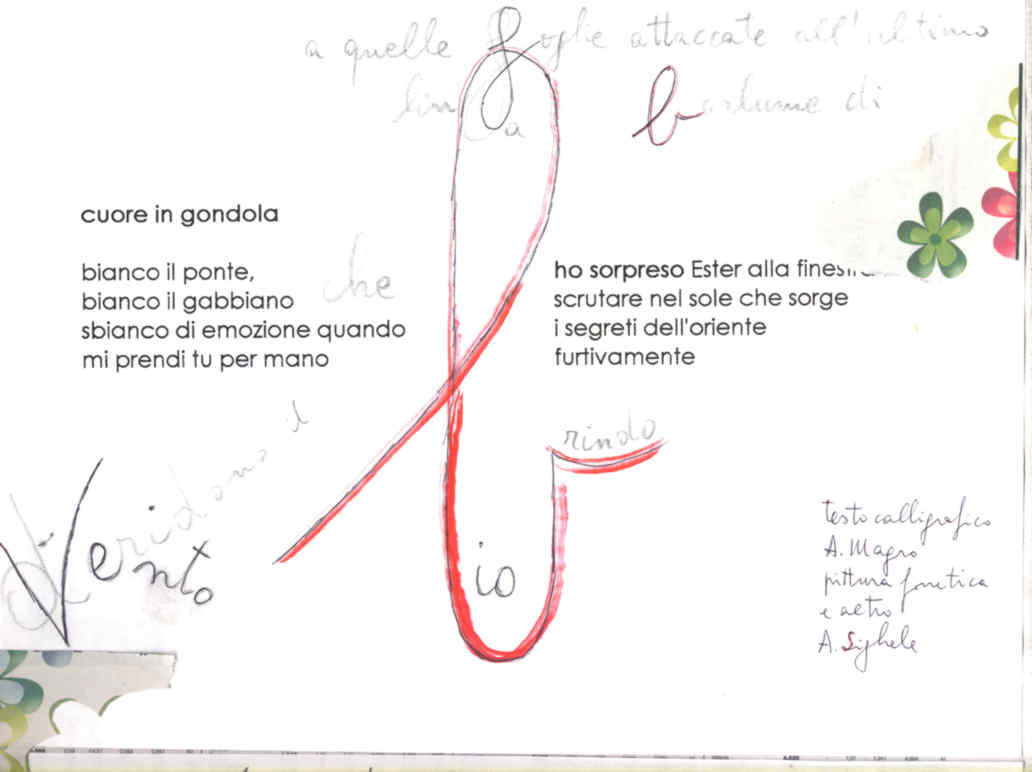 a quelle foglie attaccate all'ultimo
b
cuore in gondola
bianco il ponte,
bianco il gabbiano
sbianco di emozione quando
mi prendi tu per mano
che
ho sorpreso Ester alla finestra
scrutare nel sole che sorge
i segreti dell'oriente
furtivamente
b
rindo
io
il
Vento
testo calligrafico
A. Magro
pittura fonetica
e altro
A. Sighele